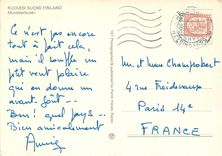 KUOVESI SUOMI FINLAND
Muroleenkoski
Ce n'est pas encore
tout à fait cela,
mais il souffle un
petit vent polaire
qui en donne un
avant goût -
Bon! quel pays -
Bien amicalement
Annie
Mr et Mme Champobert
4 rue Froidevaux
Paris 14e
FRANCE